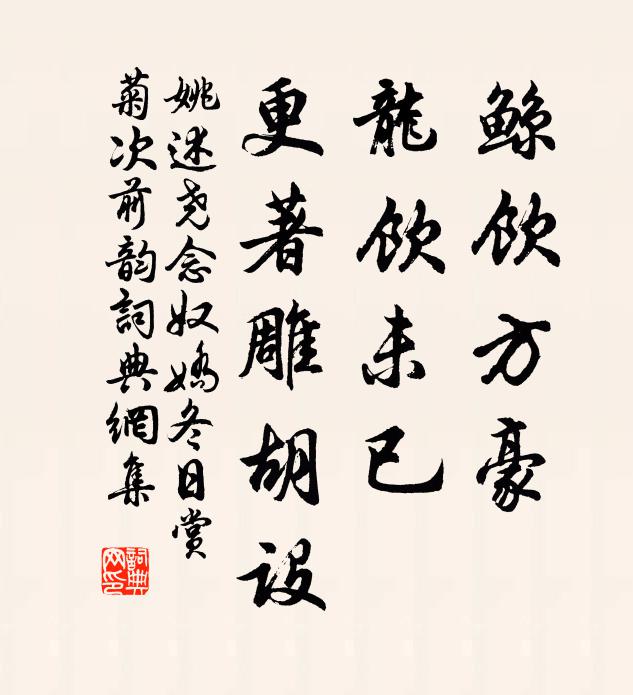 鲸饮方豪
龍饮未已
更著雕胡设
姚述尧念奴嬌冬日赏
菊次前韵詞典網集
詞典网印